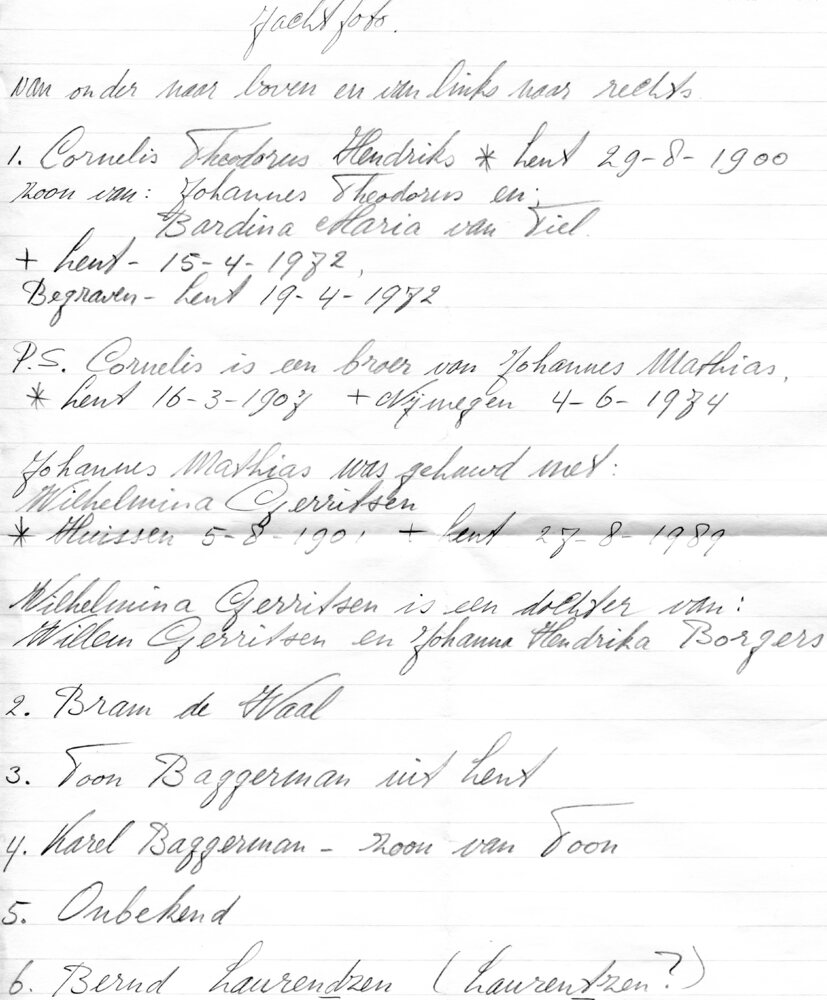 Jachtfoto.
van onder naar boven en van links naar rechts
1. Cornelis Theodorus Hendriks * Lent 29-8-1900
zoon van: Johannes Theodorus en:
Bardina Maria van Tiel.
+ Lent - 15-4-1972,
Begraven - Lent 19-4-1972
P.S. Cornelis is een broer van Johannes Mathias,
* Lent 16-3-1907 + Nijmegen 4-6-1974
Johannes Mathias was gehuwd met:
Wilhelmina Gerritsen
* Huissen 5-8-1901 + Lent 27-8-1989
Wilhelmina Gerritsen is een dochter van:
Willem Gerritsen en Johanna Hendrika Borgers
2. Bram de Waal
3. Toon Baggerman uit Lent
4. Karel Baggerman - zoon van Toon
5. Onbekend
6. Bernd Laurendzen (Laurentzen?)